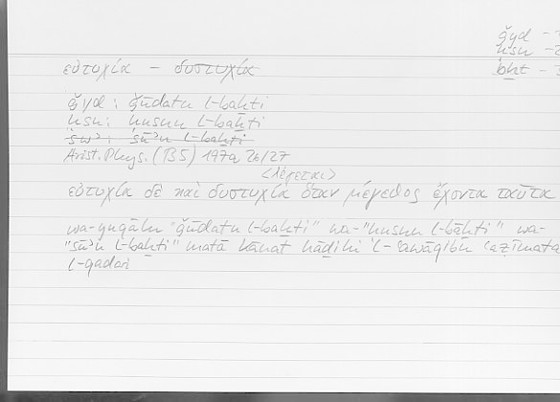 ǧyd -
ḥsn -
bḫt -
εὐτυχία – δυστυχία
ǧyd : ǧūdatu l-baḫti
ḥsn : ḥusnu l-baḫti
swʾ : sūʾu l-baḫti
Arist. Phys. (B5) 197a 26/27
<λέγεται>
εὐτυχία δὲ καὶ δυστυχία ὅταν μέγεθος ἔχοντα ταῦτα
wa-yuqālu "ǧūdatu l-baḫti" wa-"ḥusnu l-baḫti" wa-
"sūʾu l-baḫti" matā kānat hāḏihi l-ʿawāqibu ʿaẓīmata
l-qadri